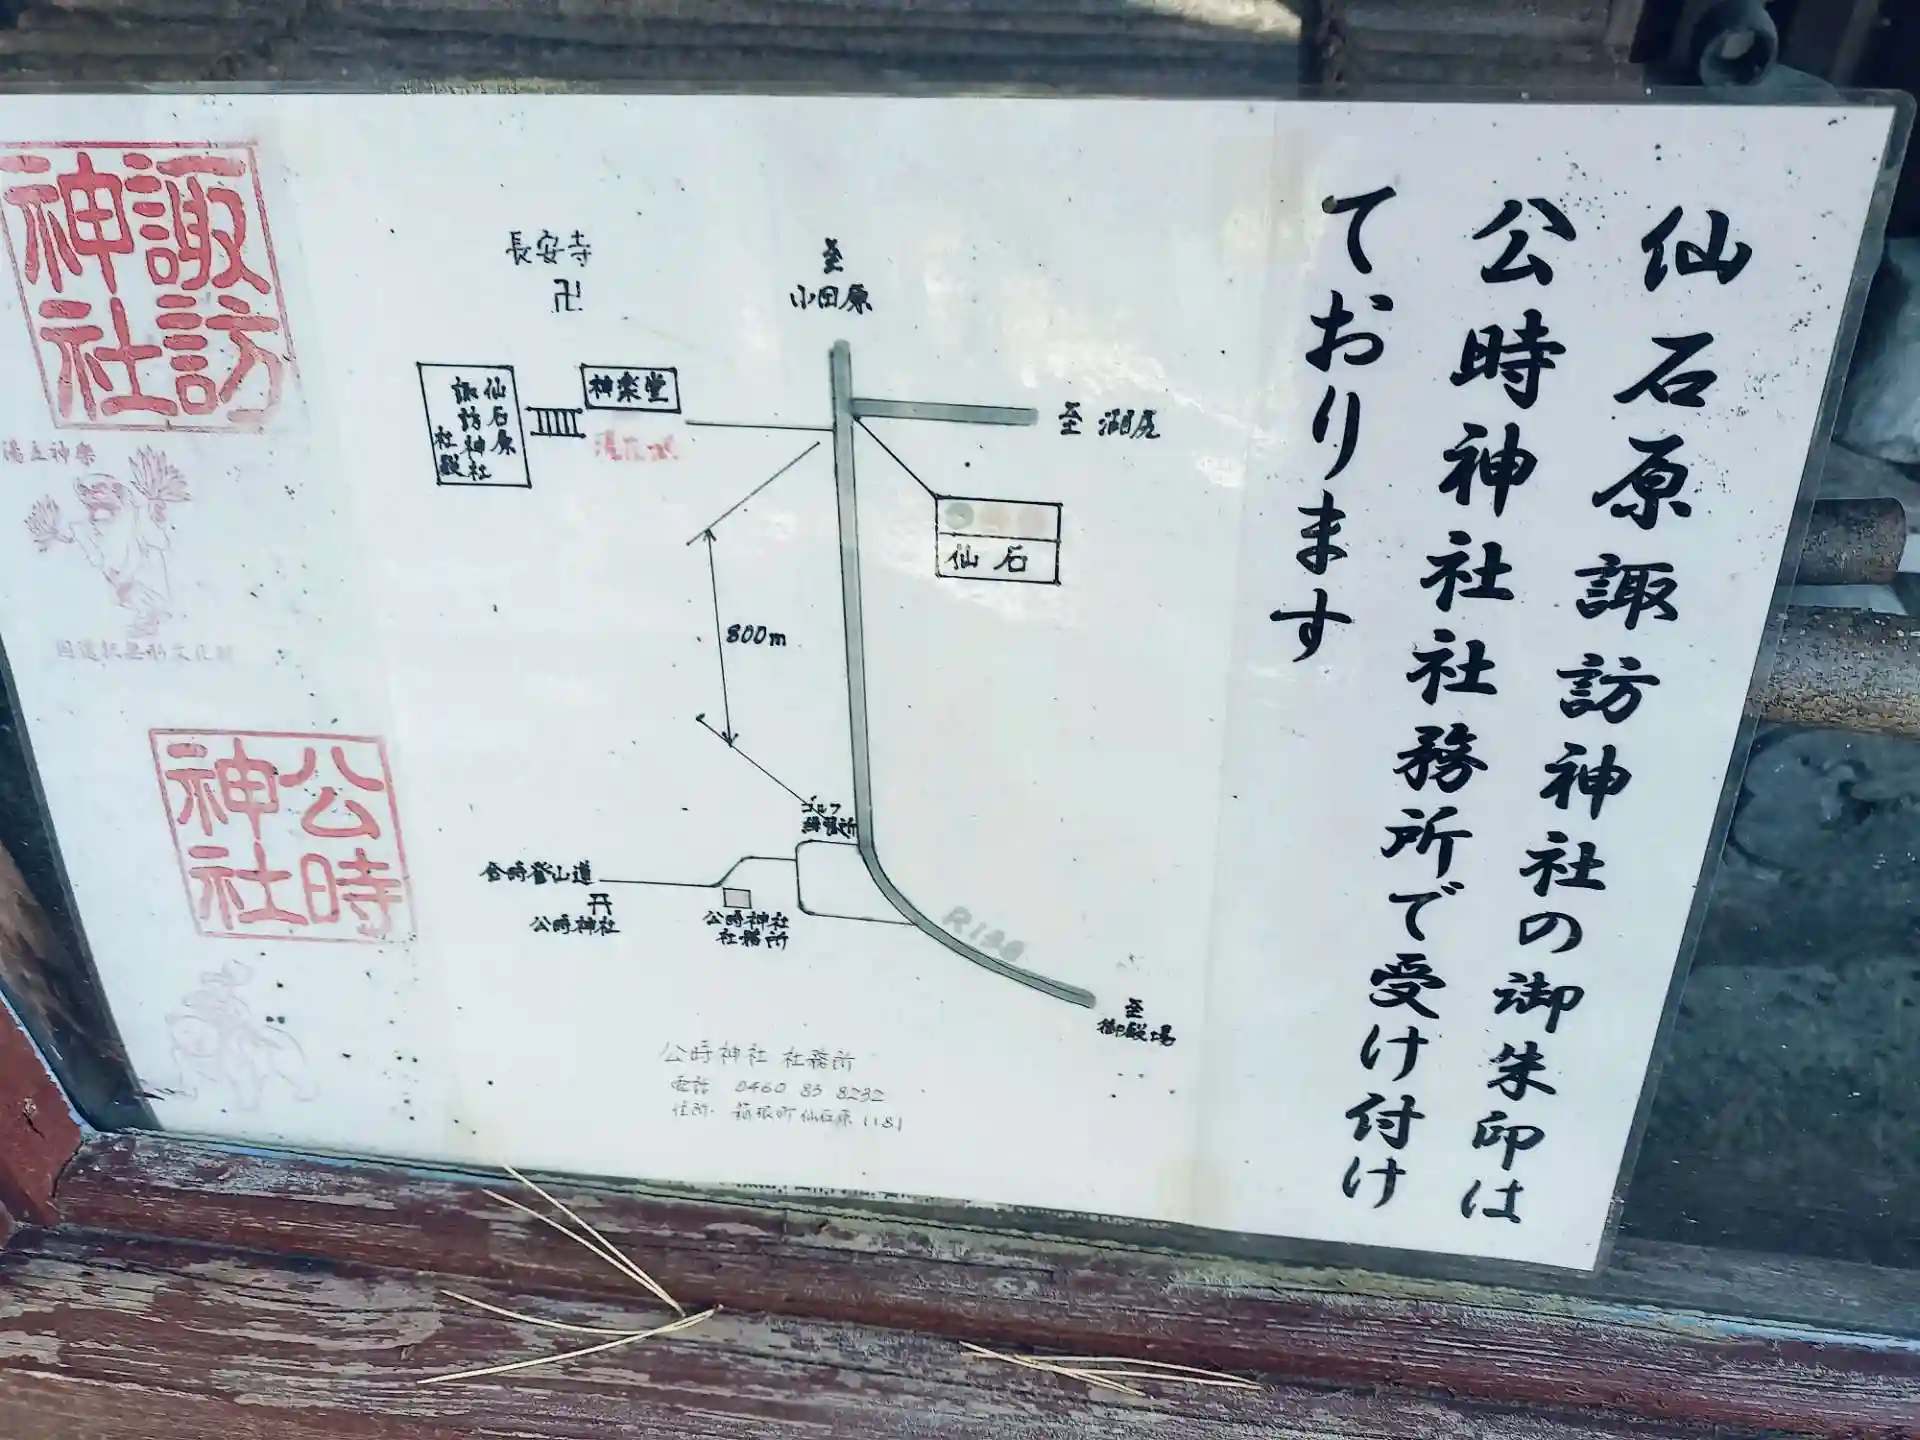 仙石原諏訪神社の御朱印は
公時神社社務所で受け付け
ております
至
小田原
長安寺
卍
神楽堂
仙石原
諏訪神社
社殿
至 湖尻
仙石
800m
ゴルフ
練習所
金時登山道
公時神社
公時神社
社務所
R138
至
御殿場
公時神社 社務所
電話 0460 83 8232
住所 箱根町仙石原1181
諏訪
神社
湯立神楽
国選択無形文化財
公時
神社